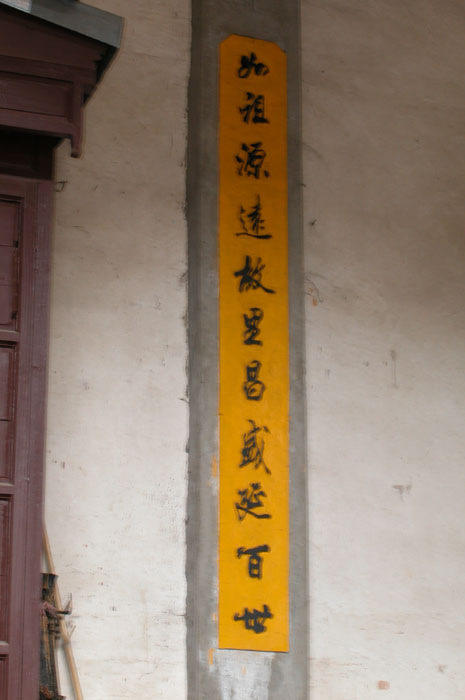 如祖源遠故里昌盛延百世